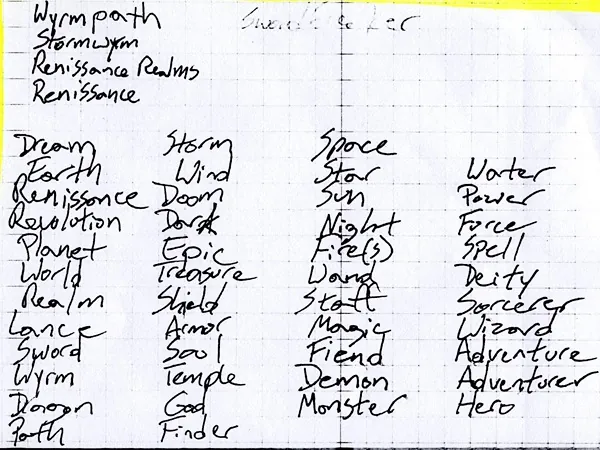 Wyrmpath
Stormwyrm
Renissance Realms
Renissance
Dream
Earth
Renissance
Revolution
Planet
World
Realm
Lance
Sword
Wyrm
Dragon
Path
Storm
Wind
Doom
Dark
Epic
Treasure
Shield
Armor
Soul
Temple
God
Finder
Space
Star
Sun
Night
Fire(s)
Wand
Staff
Magic
Fiend
Demon
Monster
Water
Power
Force
Spell
Deity
Sorcerer
Wizard
Adventure
Adventurer
Hero